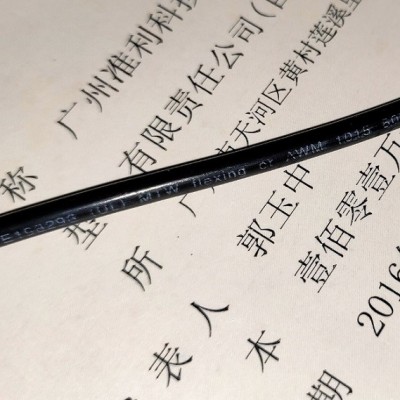 称 广州准利科技
型 有限责任公司(自
所 广 天河区黄村莲溪
表人 郭玉中
本 壹佰零壹万
期 2016
E163293 (UL) MTW flexing or AWM 1015 60